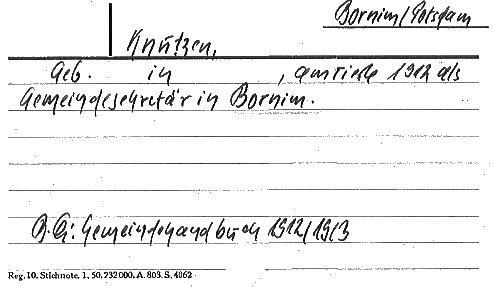 Bornim/Potsdam
Knutzen,
Geb. in , amtierte 1912 als
Gemeindesekretär in Bornim.
Gemeindehandbuch 1912/1913
Reg. 10. Stichnote. 1, 50, 232000, A. 803. S. 4062